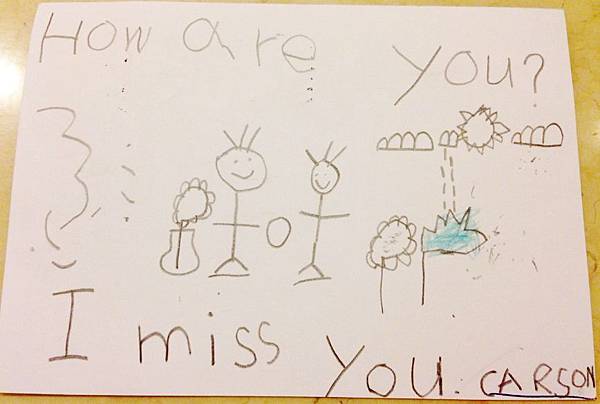 How are you?
I miss you. CARSON